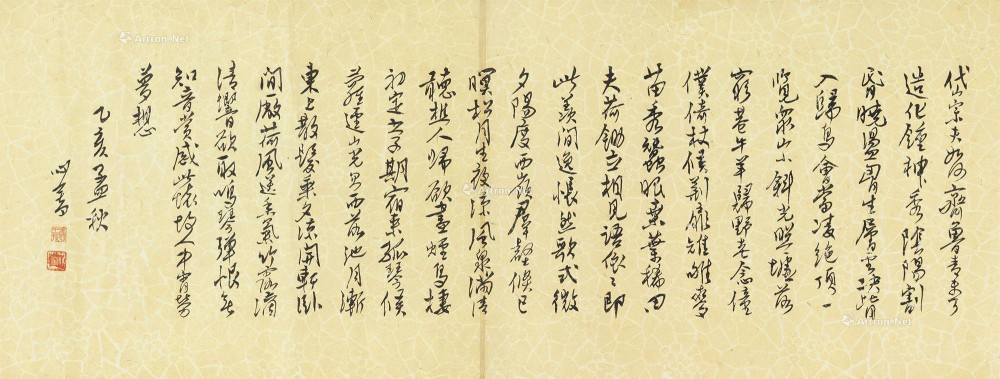 岱宗夫如何齊魯青未了
造化鍾神秀陰陽割
昏曉盪胷生層雲決眥
入歸鳥會當凌絕頂一
覽眾山小斜光照墟落
窮巷牛羊歸野老念僮
僕倚杖候荊扉雉雊麥
苗秀蠶眠桑葉稀田
夫荷鋤立相見語依〻即
此羨閒逸悵然歌式微
夕陽度西嶺羣壑倏已
暝松月生夜涼風泉滿清
聽樵人歸欲盡煙鳥棲
初定之子期宿來孤琴候
蘿逕山光忽西落池月漸
東上散髮乘夕涼開軒臥
閒敞荷風送香氣竹露滴
清響欲取鳴琴彈恨無
知音賞感此懷故人中宵勞
夢想
乙亥孟秋
心畬
Artron.Net
Artron.Net
Artron.Net
Artron.Net